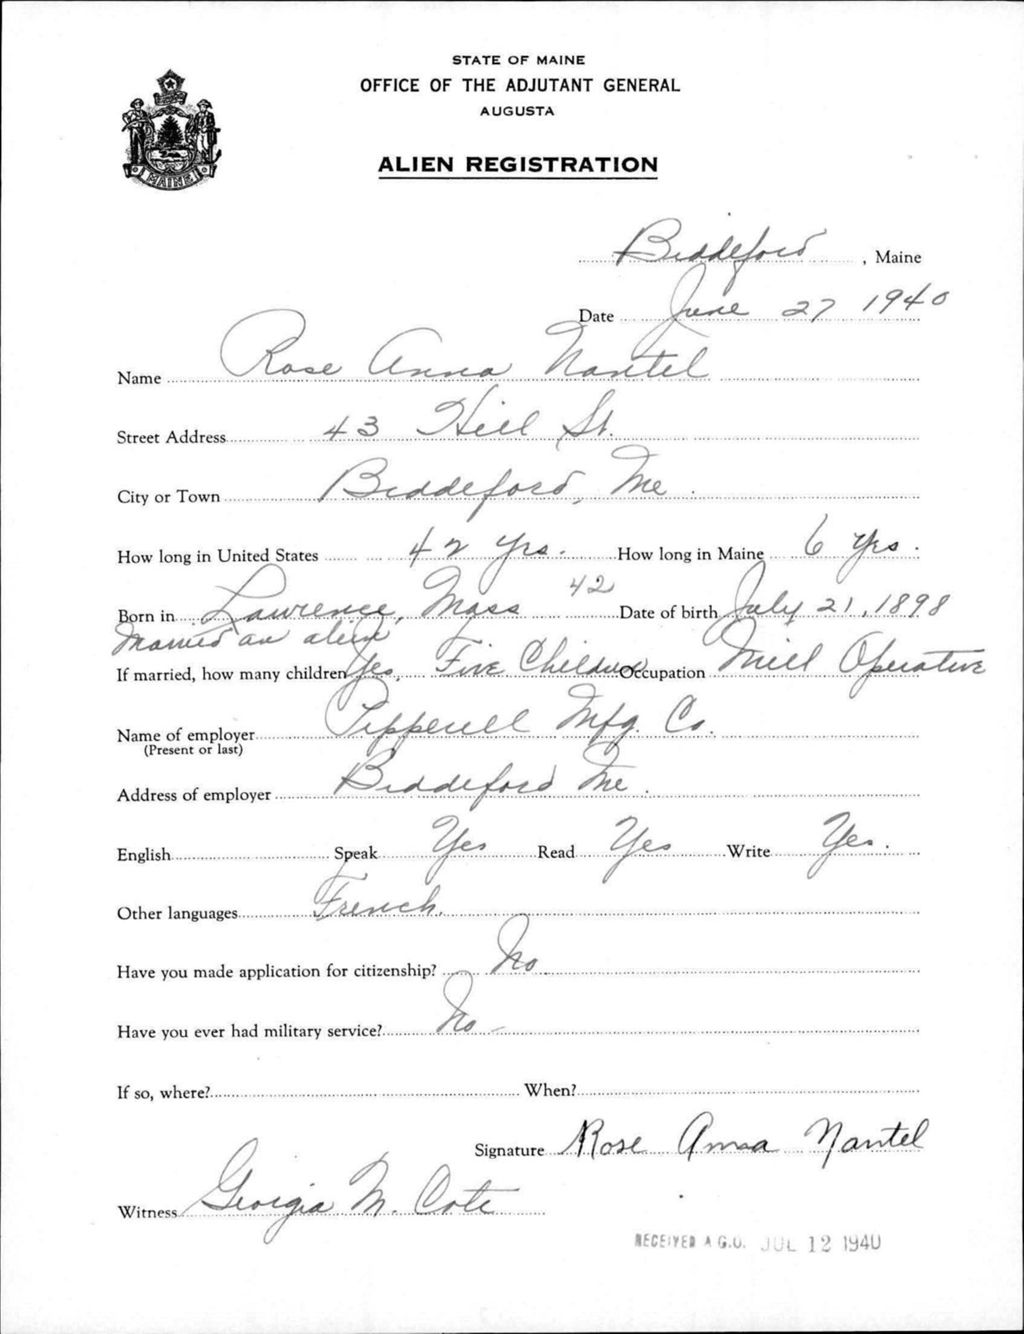 STATE OF MAINE
OFFICE OF THE ADJUTANT GENERAL
AUGUSTA
ALIEN REGISTRATION
MAINE
Biddeford, Maine
Date June 27 1940
Name Rose Anna Nantel
Street Address 43 Hill St.
City or Town Biddeford, Me.
How long in United States 42 Yrs. How long in Maine 6 Yrs.
42
Born in Lawrence, Mass Date of birth July 21, 1898
Married an alien
If married, how many children Yes, Five Children Occupation Mill Operative
Name of employer Pepperell Mfg. Co.
(Present or last)
Address of employer Biddeford Me.
English Speak Yes Read Yes Write Yes.
Other languages French.
Have you made application for citizenship? No
Have you ever had military service? No -
If so, where? When?
Signature Rose Anna Nantel
Witness Georgia M. Cote
RECEIVED A.G.O. JUL 12 1940